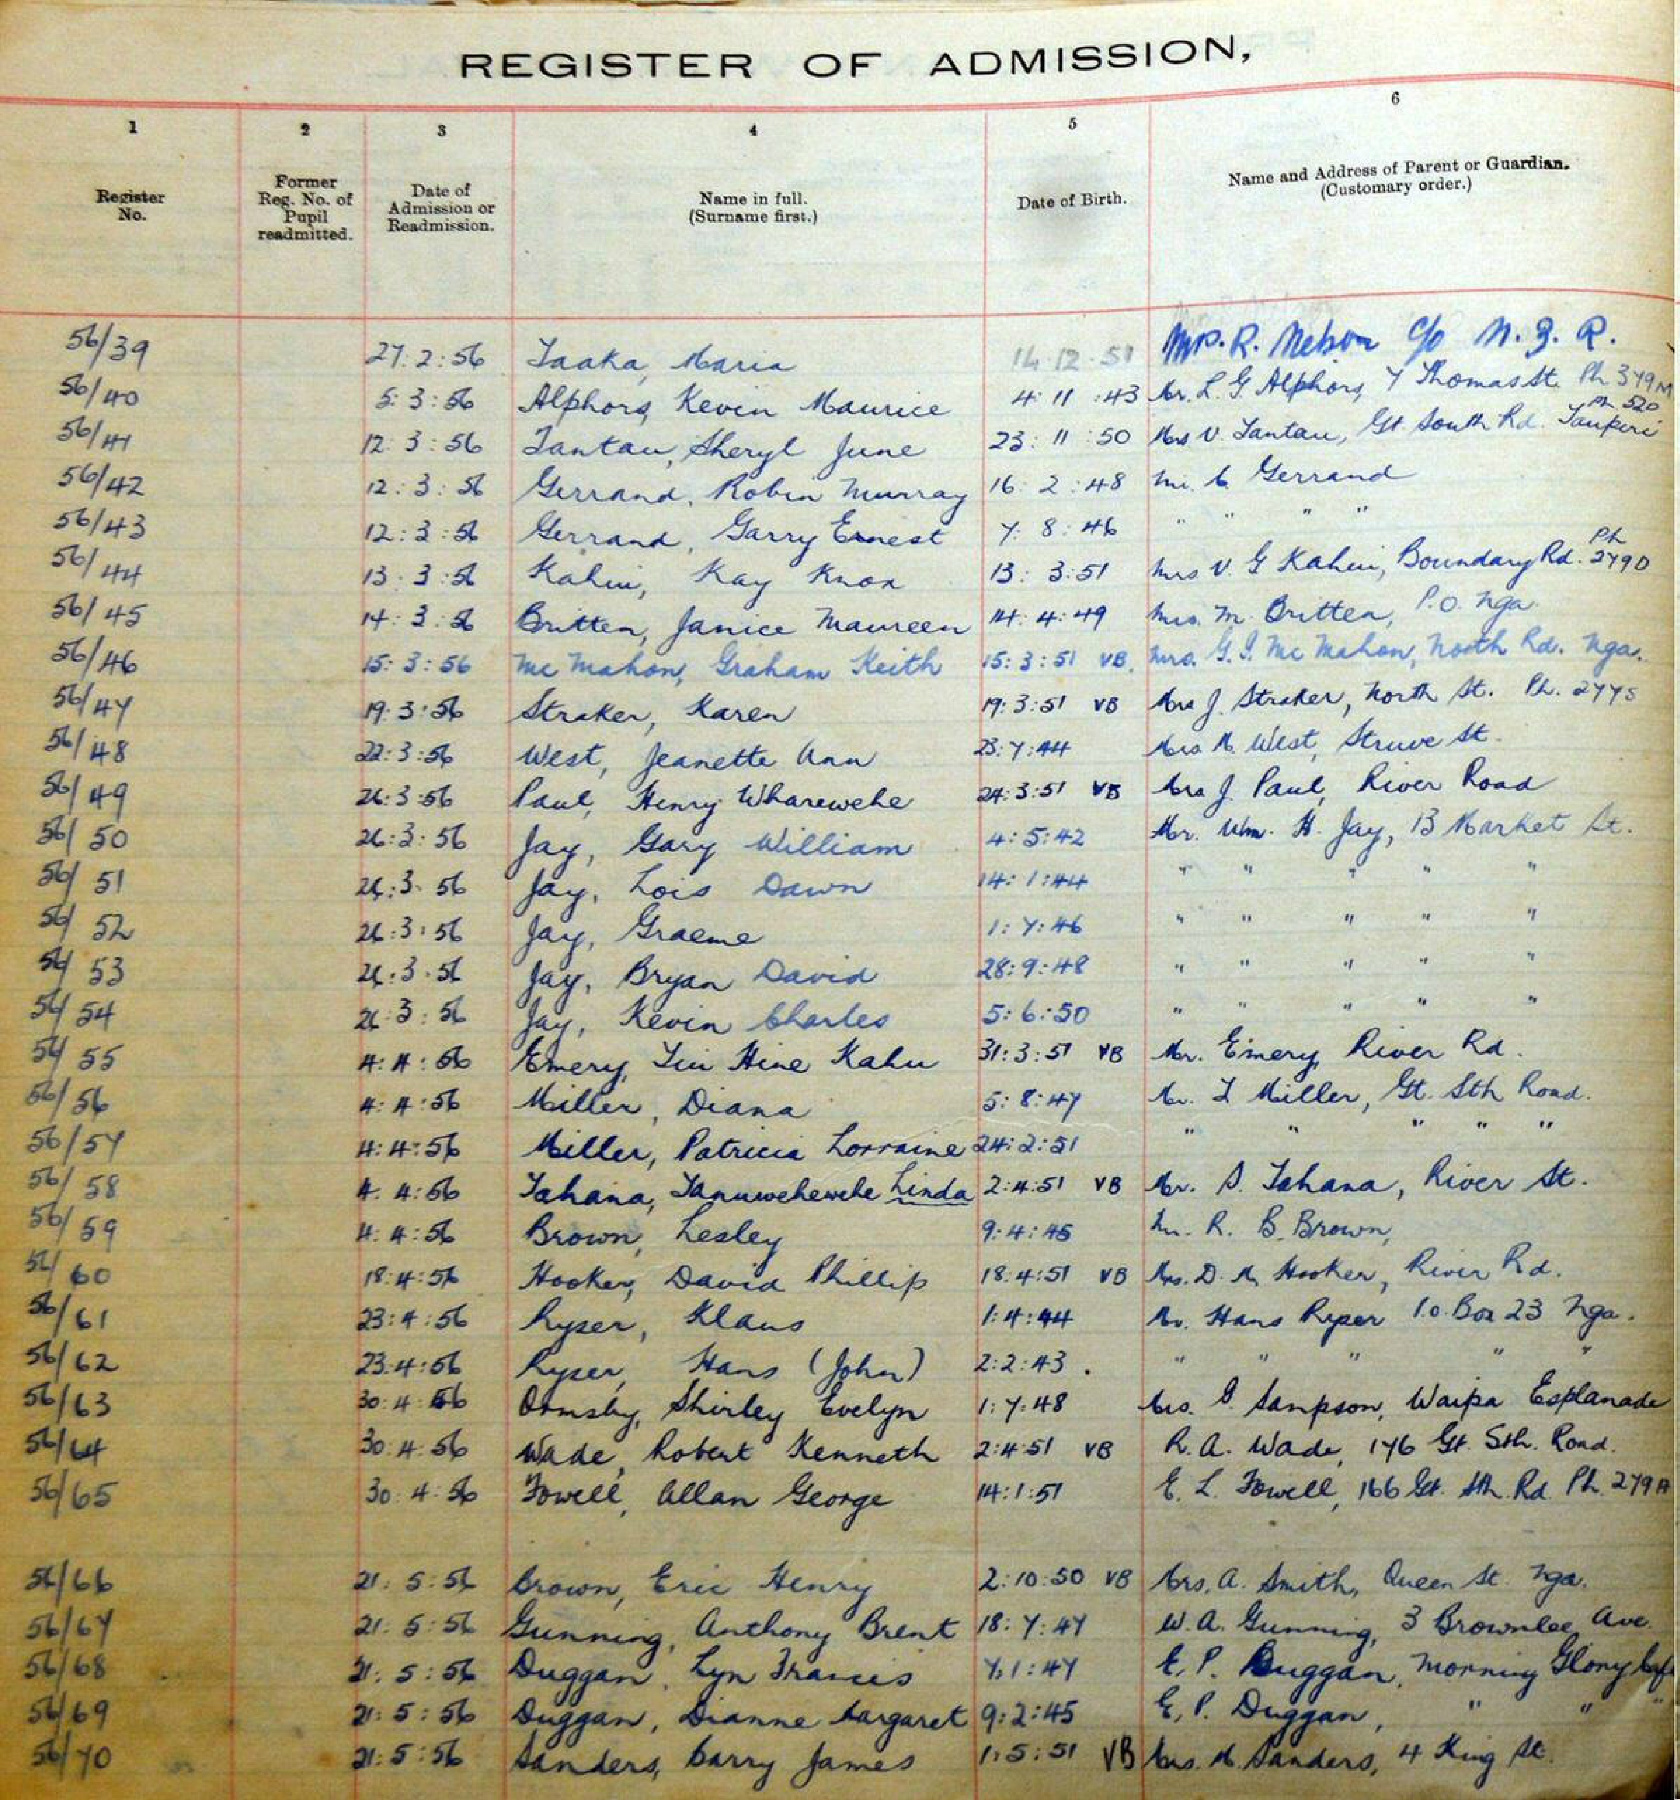 REGISTER OF ADMISSION,
1 2 3 4 5 6
Register No. Former Reg. No. of Pupil readmitted. Date of Admission or Readmission. Name in full. (Surname first.) Date of Birth. Name and Address of Parent or Guardian. (Customary order.)
56/39 27:2:56 Taaka, Maria 14 12 51 Mrs. R. Nelson c/o N. Z. R.
56/40 5:3:56 Alphors, Kevin Maurice 4:11:43 Mr. L. G. Alphors, 7 Thomas St. Ph 379M
56/41 12:3:56 Tantau, Sheryl June 23:11:50 Mrs V. Tantau, Gt South Rd. Taupiri Ph 520
56/42 12:3:56 Gerrand, Robin Murray 16:2:48 Mr. C Gerrand
56/43 12:3:56 Gerrand, Garry Ernest 7:8:46 " " " "
56/44 13:3:56 Kahui, Kay Knox 13:3:51 Mrs V. G Kahui, Boundary Rd. Ph 279D
56/45 14:3:56 Britten, Janice Maureen 14:4:49 Mrs. M. Britten, P.O. Nga.
56/46 15:3:56 Mc Mahon, Graham Keith 15:3:51 VB. Mrs. G. I. Mc Mahon, North Rd. Nga.
56/47 19:3:56 Straker, Karen 19:3:51 VB Mrs J. Straker, North St. Ph. 277S
56/48 22:3:56 West, Jeanette Ann 23:7:44 Mrs M. West, Struve St.
56/49 26:3:56 Paul, Henry Wharewehe 24:3:51 VB Mrs J. Paul, River Road
56/50 26:3:56 Jay, Gary William 4:5:42 Mr. Wm. H. Jay, 13 Market St.
56/51 26:3:56 Jay, Lois Dawn 14:1:44 " " " " "
56/52 26:3:56 Jay, Graeme 1:7:46 " " " " "
56/53 26:3:56 Jay, Bryan David 28:9:48 " " " " "
56/54 26:3:56 Jay, Kevin Charles 5:6:50 " " " " "
56/55 4:4:56 Emery, Tui Hine Kahu 31:3:51 VB Mr. Emery, River Rd.
56/56 4:4:56 Miller, Diana 5:8:47 Mr. T Miller, Gt. Sth Road.
56/57 4:4:56 Miller, Patricia Lorraine 24:2:51 " " " " "
56/58 4:4:56 Tahana, Tanuwehewehe Linda 2:4:51 VB Mr. S. Tahana, River St.
56/59 4:4:56 Brown, Lesley 9:4:45 Mr. R. B. Brown,
56/60 18:4:56 Hooker, David Phillip 18:4:51 VB Mrs. D. M. Hooker, River Rd.
56/61 23:4:56 Ryser, Klaus 1:4:44 Mr. Hans Ryser P.O. Box 23 Nga.
56/62 23:4:56 Ryser, Hans (John) 2:2:43. " " " " "
56/63 30:4:56 Ormsby, Shirley Evelyn 1:7:48 Mrs. G. Sampson, Waipa Esplanade
56/64 30:4:56 Wade, Robert Kenneth 2:4:51 VB R. A. Wade, 176 Gt. Sth. Road.
56/65 30:4:56 Fowell, Allan George 14:1:51 E. L. Fowell, 166 Gt. Sth Rd Ph. 279A
56/66 21:5:56 Brown, Eric Henry 2:10:50 VB Mrs. A. Smith, Queen St. Nga.
56/67 21:5:56 Gunning, Anthony Brent 18:7:47 W. A. Gunning, 3 Brownlee Ave.
56/68 21:5:56 Duggan, Lyn Francis 7:1:47 E. P. Duggan, Morning Glory Caf
56/69 21:5:56 Duggan, Dianne Margaret 9:2:45 E. P. Duggan, " " "
56/70 21:5:56 Sanders, Barry James 1:5:51 VB Mrs. M. Sanders, 4 King St.